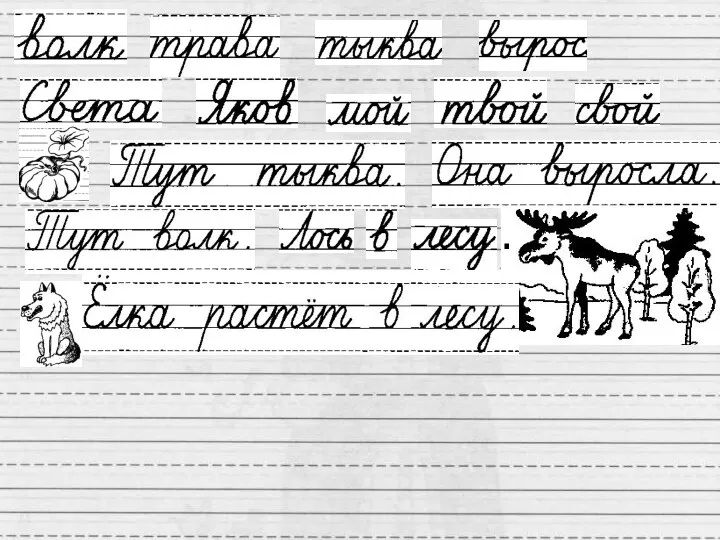 волк трава тыква вырос
Света Яков мой твой свой
Тут тыква. Она выросла.
Тут волк. Лось в лесу.
Ёлка растёт в лесу.